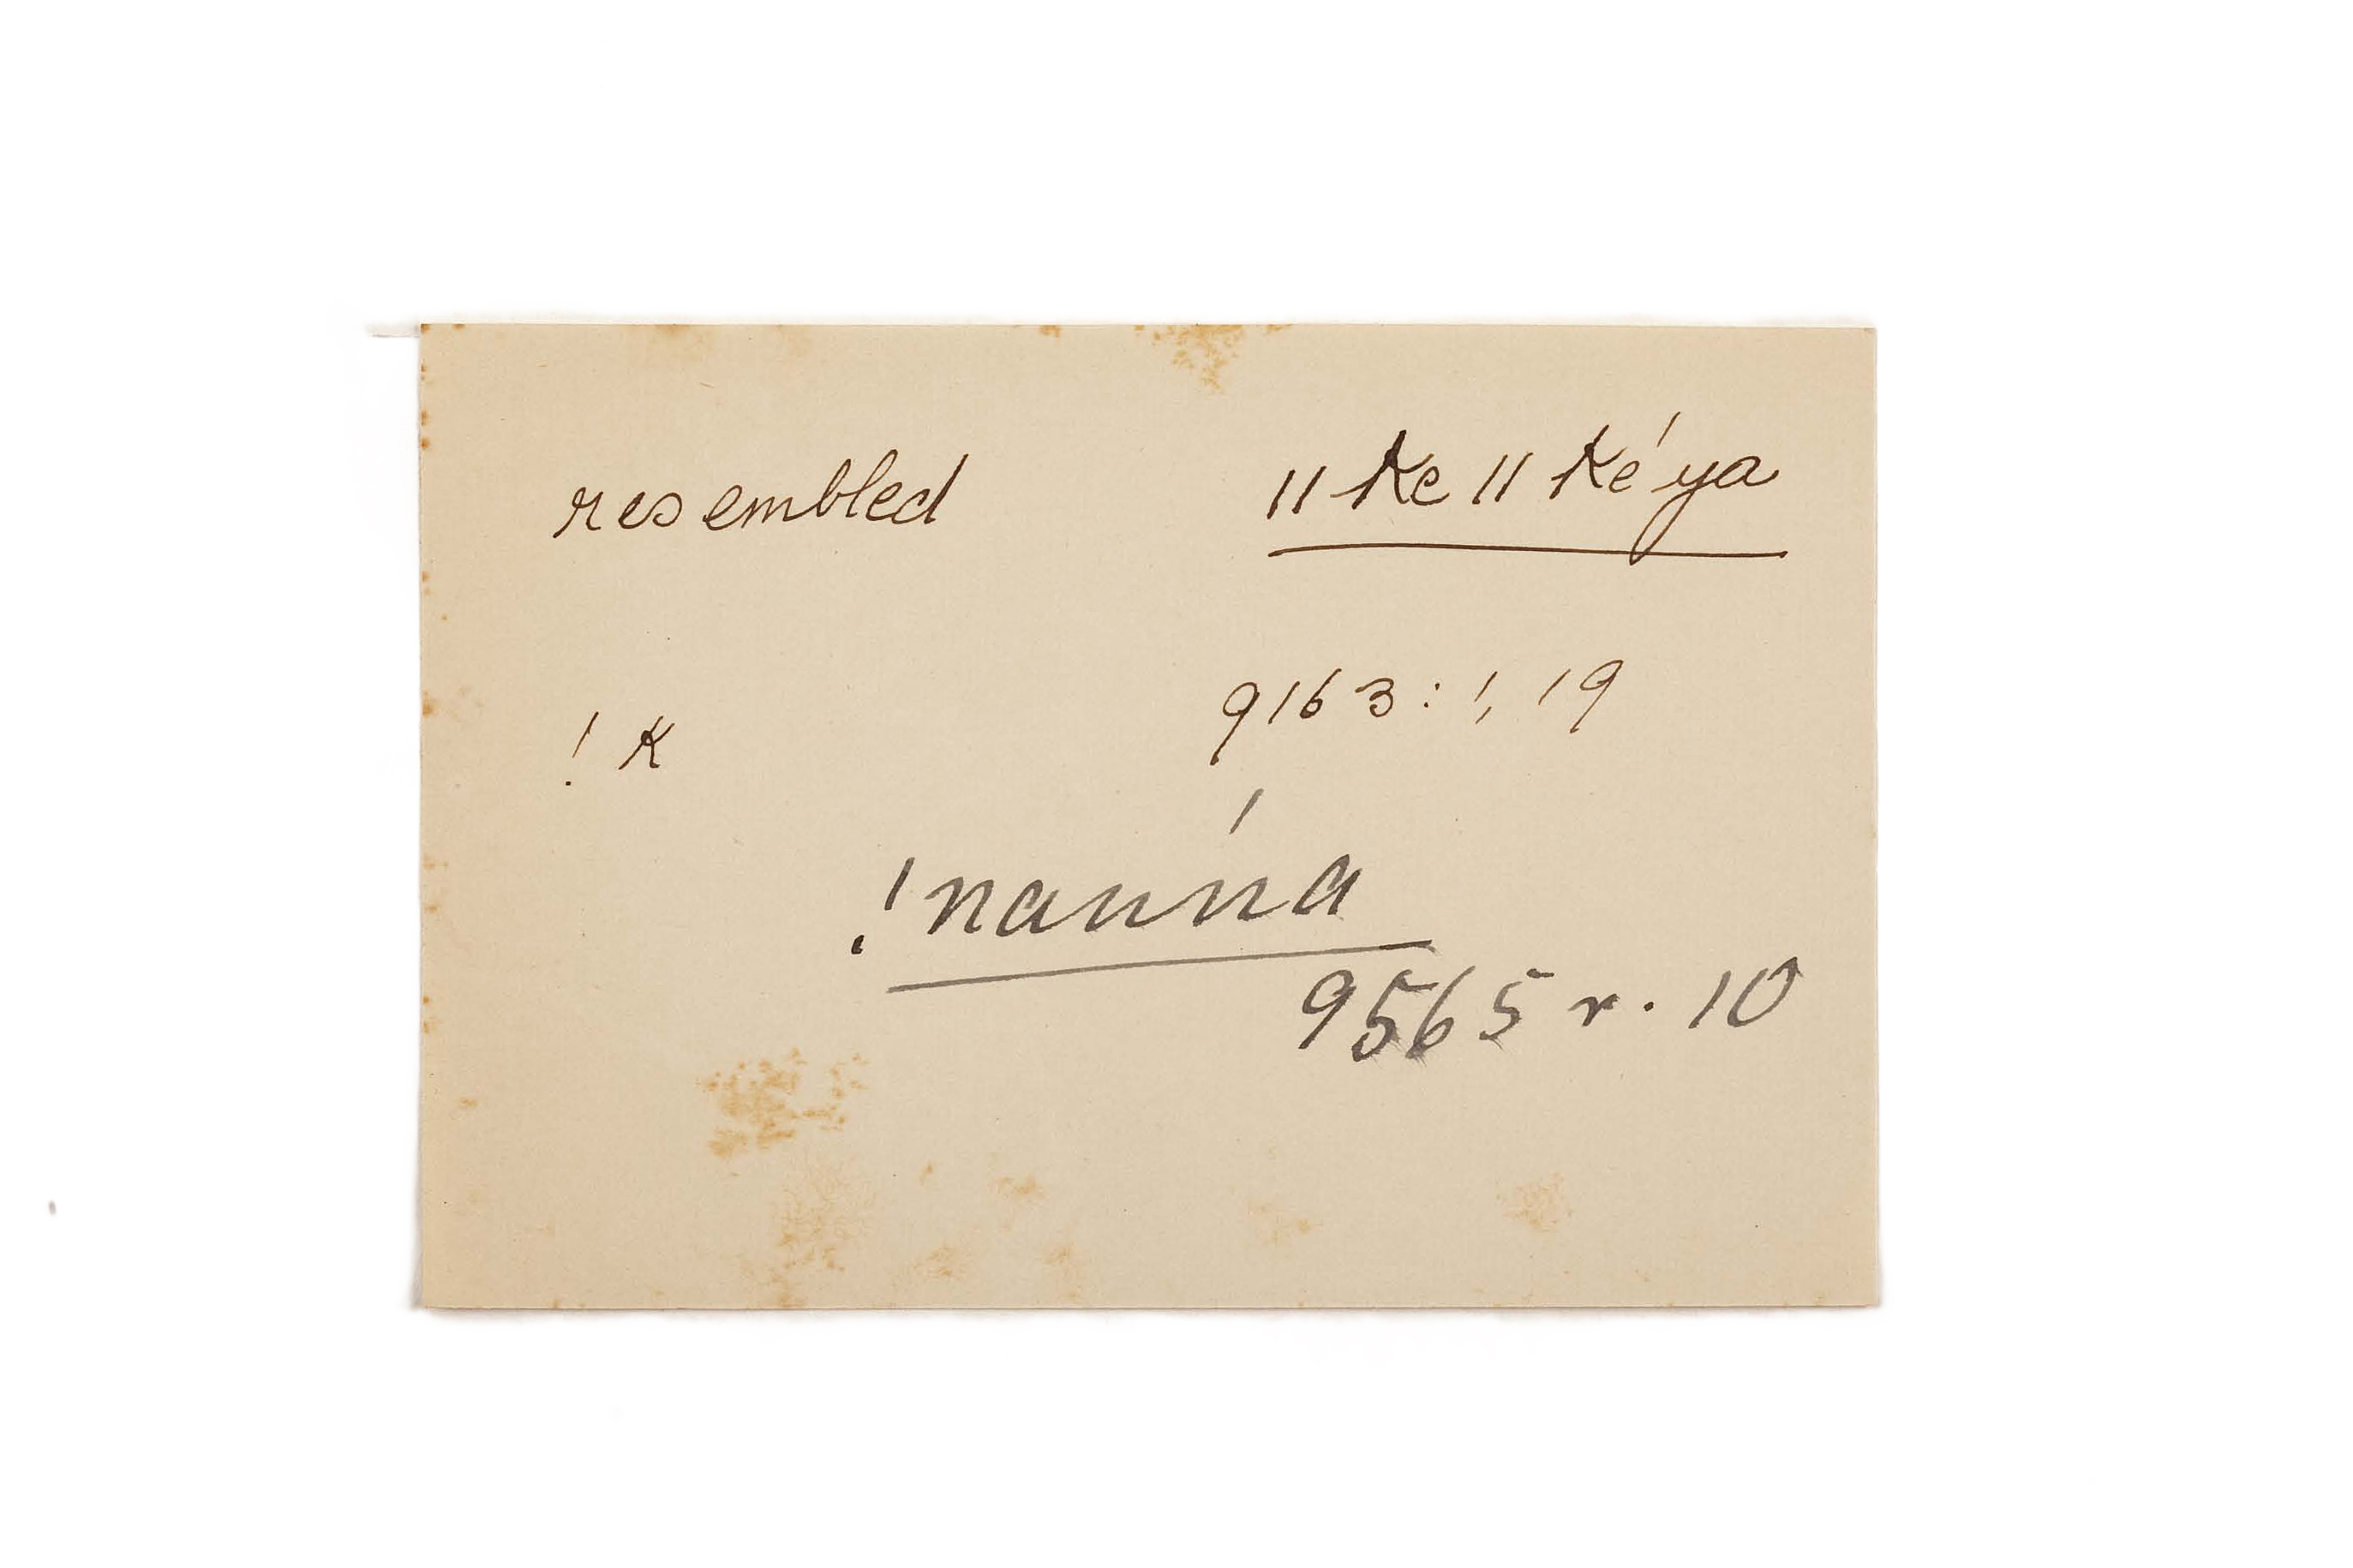 resembled ǁke ǁké ya
9163: !, 19
! K
!nanna
9565 r. 10